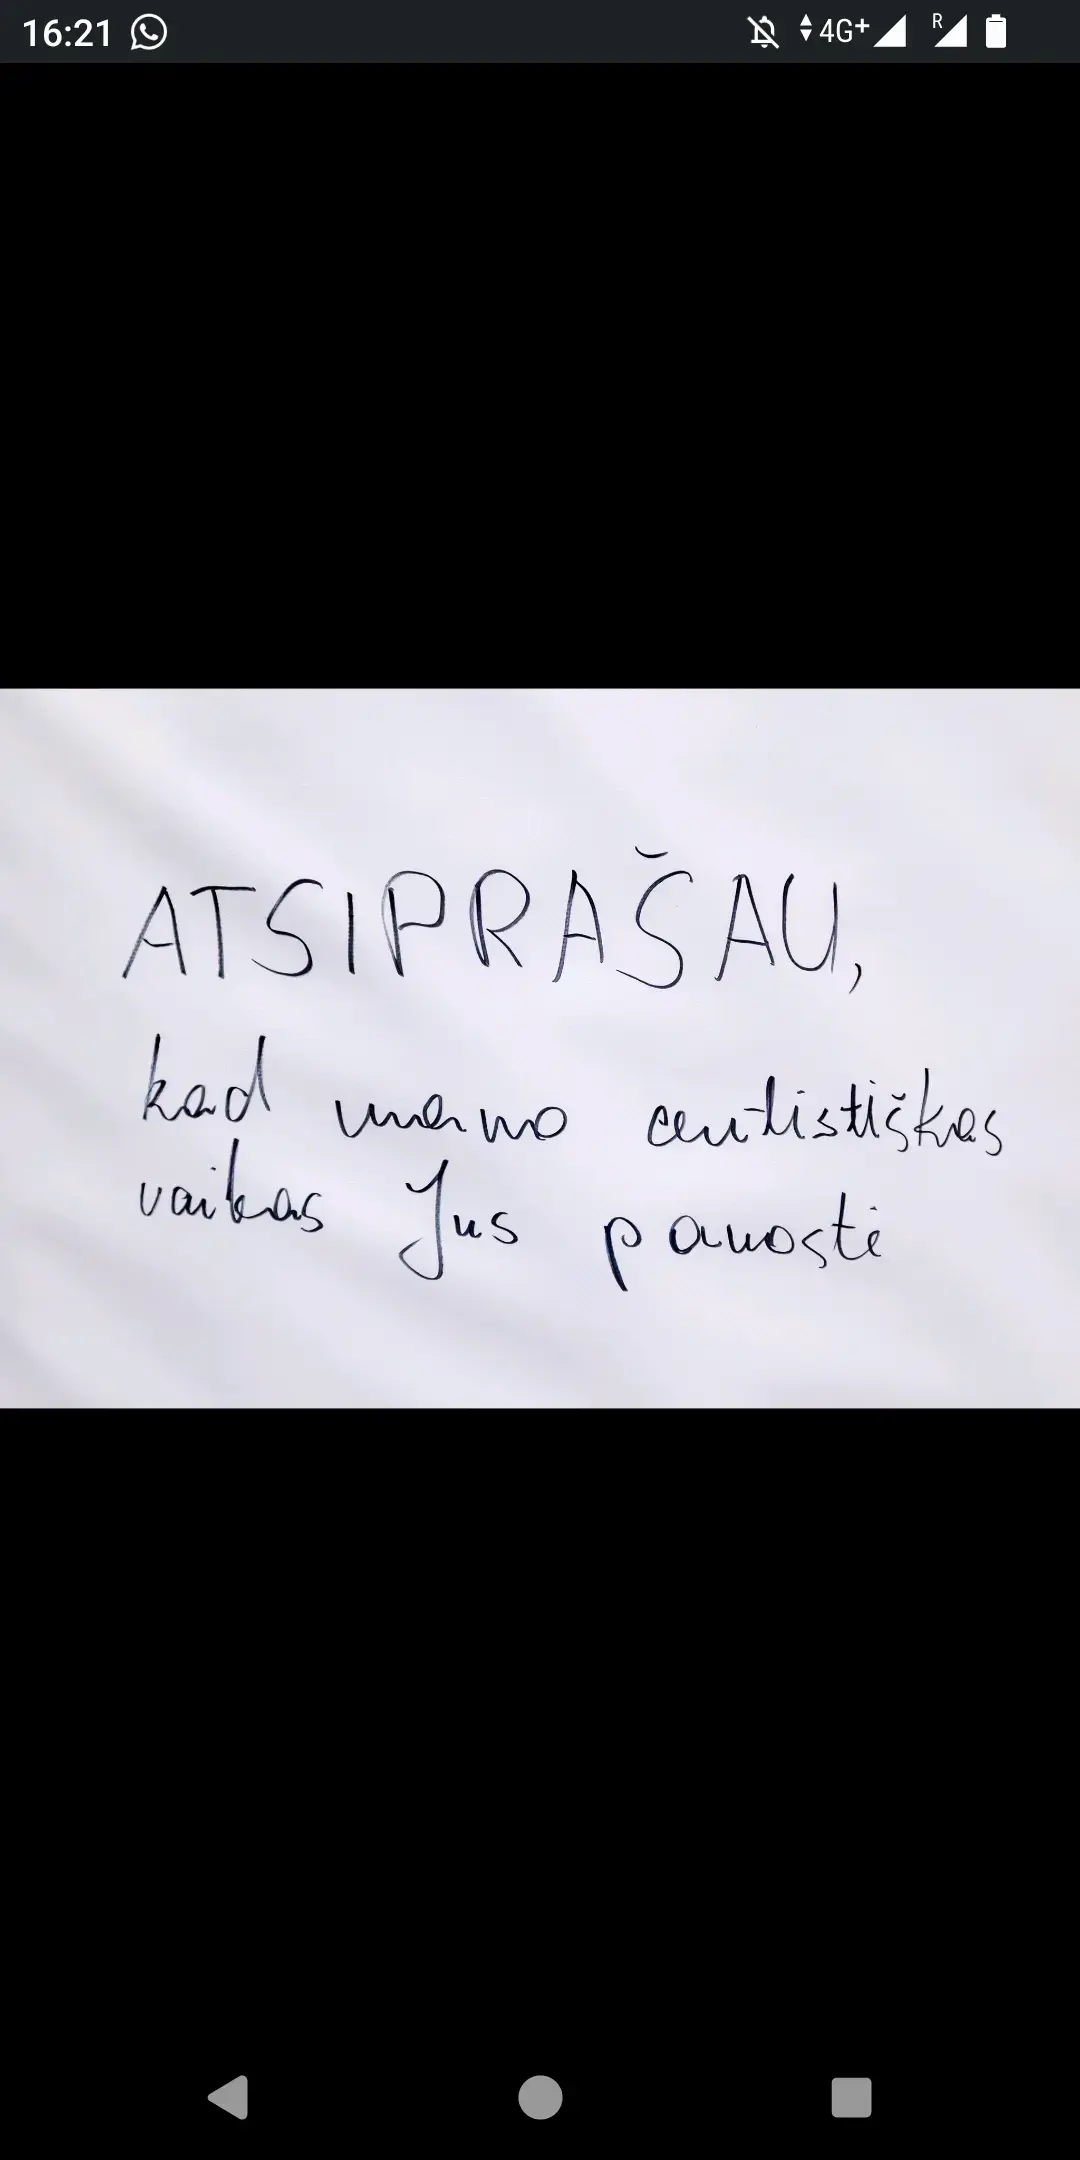 16:21 4G+ R
ATSIPRAŠAU,
kad mano autistiškas
vaikas Jus panosti